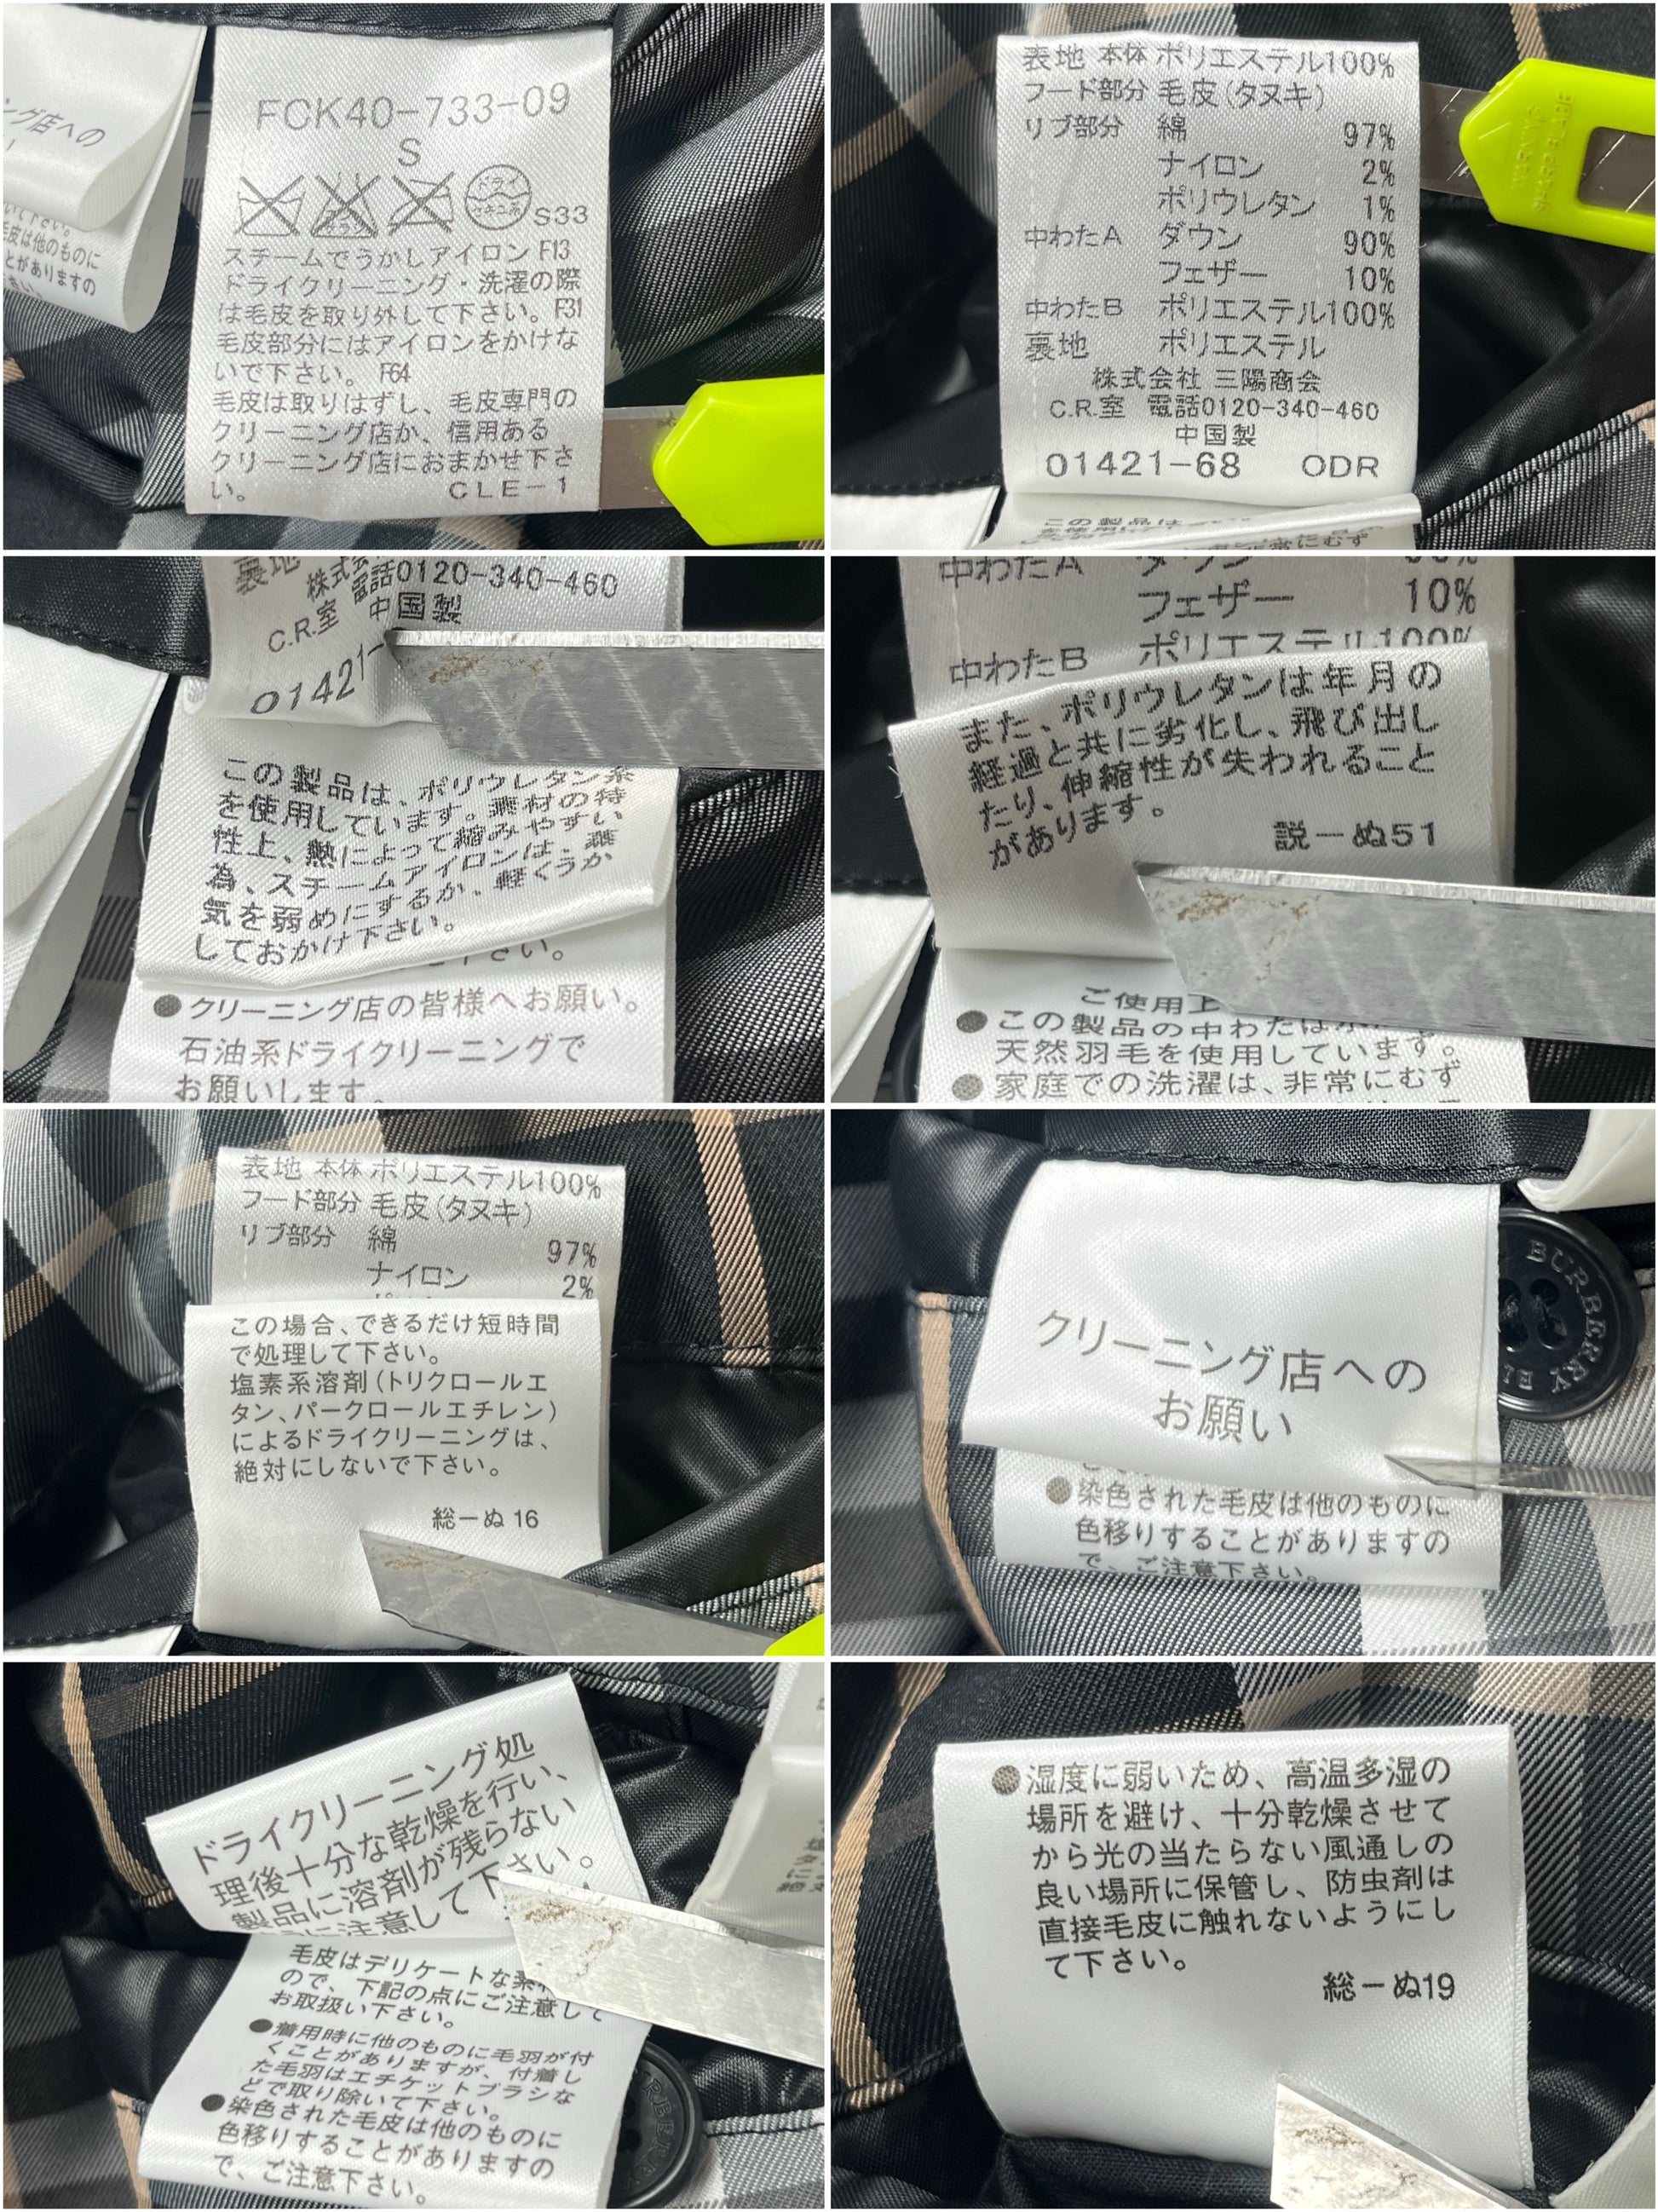 ング店への
いて下さい。
毛皮は他のものに
とがありますの
さい。
FCK40-733-09
S
ドライ
セキユ系
S33
スチームでうかしアイロン F13
ドライクリーニング・洗濯の際
は毛皮を取り外して下さい。F31
毛皮部分にはアイロンをかけな
いで下さい。 F64
毛皮は取りはずし、毛皮専門の
クリーニング店か、信用ある
クリーニング店におまかせ下さ
い。 CLE-1
表地 本体 ポリエステル100%
フード部分 毛皮(タヌキ)
リブ部分 綿 97%
ナイロン 2%
ポリウレタン 1%
中わたA ダウン 90%
フェザー 10%
中わたB ポリエステル100%
裏地 ポリエステル
株式会社 三陽商会
C.R.室 電話0120-340-460
中国製
01421-68 ODR
この製品は
WARNING
SHARP BLADE
裏地
株式会
C.R.室 電話0120-340-460
中国製
01421-
この製品は、ポリウレタン糸
を使用しています。素材の特
性上、熱によって縮みやすい
為、スチームアイロンは、蒸
気を弱めにするか、軽くうか
しておかけ下さい。
さい。
●クリーニング店の皆様へお願い。
石油系ドライクリーニングで
お願いします。
中わたA ダウン
フェザー 10%
中わたB ポリエステル100%
また、ポリウレタンは年月の
経過と共に劣化し、飛び出し
たり、伸縮性が失われること
があります。
説-ぬ51
ご使用上
●この製品の中わたは
天然羽毛を使用しています。
●家庭での洗濯は、非常にむず
表地 本体 ポリエステル100%
フード部分 毛皮(タヌキ)
リブ部分 綿 97%
ナイロン 2%
この場合、できるだけ短時間
で処理して下さい。
塩素系溶剤(トリクロールエ
タン、パークロールエチレン)
によるドライクリーニングは、
絶対にしないで下さい。
総-ぬ16
クリーニング店への
お願い
●染色された毛皮は他のものに
色移りすることがありますの
で、ご注意下さい。
BURBERRY BL
ドライクリーニング処
理後十分な乾燥を行い、
製品に溶剤が残らない
ように注意して下さい。
毛皮はデリケートな素
ので、下記の点にご注意して
お取扱い下さい。
●着用時に他のものに毛羽が付
くことがありますが、付着し
た毛羽はエチケットブラシな
どで取り除いて下さい。
●染色された毛皮は他のものに
色移りすることがありますの
で、ご注意下さい。
●湿度に弱いため、高温多湿の
場所を避け、十分乾燥させて
から光の当たらない風通しの
良い場所に保管し、防虫剤は
直接毛皮に触れないようにし
て下さい。
総-ぬ19